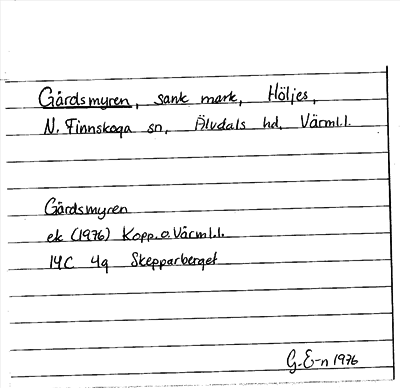 Gårdsmyren, sank mark, Höljes,
N. Finnskoga sn, Älvdals hd, Värml.l.
Gårdsmyren
ek (1976) Kopp. o. Värml.l.
14C 4g Skepparberget
G. E-n 1976